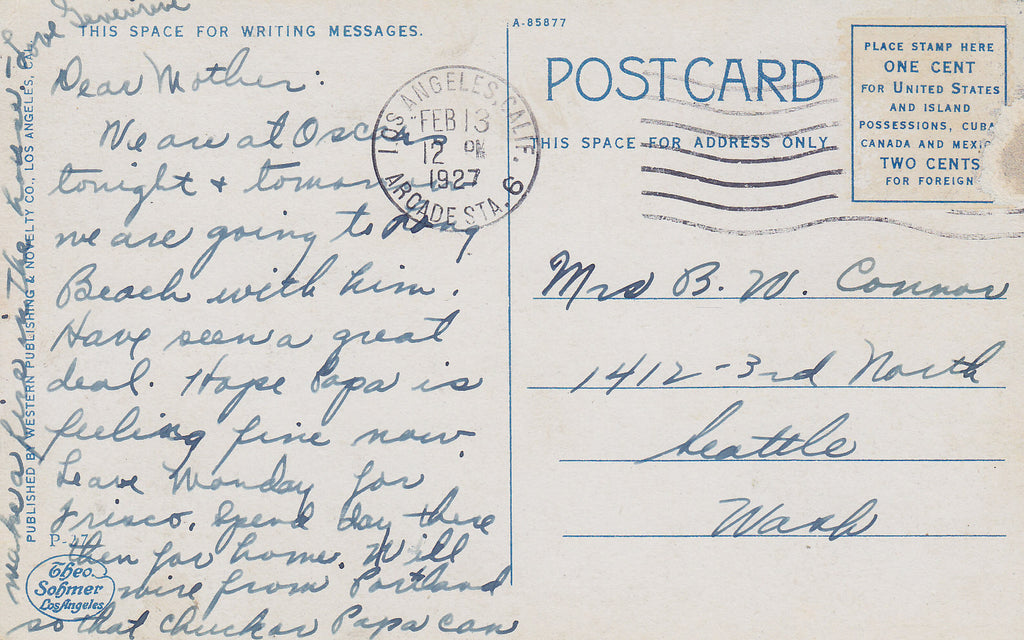 THIS SPACE FOR WRITING MESSAGES.
Dear Mother:
We are at Oscar's
tonight + tomorrow
we are going to Long
Beach with him.
Have seen a great
deal. Hope Papa is
feeling fine now
Leave Monday for
Frisco. Spend day there
then for home. Will
wire from Portland
so that Chuck or Papa can
make a fire in the house - Love
Genevieve
PUBLISHED BY WESTERN PUBLISHING & NOVELTY CO., LOS ANGELES, CAL.
P-47
Theo.
Sohmer
Los Angeles
A-85877
POST CARD
THIS SPACE FOR ADDRESS ONLY
LOS ANGELES, CALIF. 9
FEB 13
12 PM
1927
ARCADE STA.
PLACE STAMP HERE
ONE CENT
FOR UNITED STATES
AND ISLAND
POSSESSIONS, CUBA
CANADA AND MEXIC
TWO CENTS
FOR FOREIGN
Mrs B. W. Connor
1412 - 3rd North
Seattle
Wash